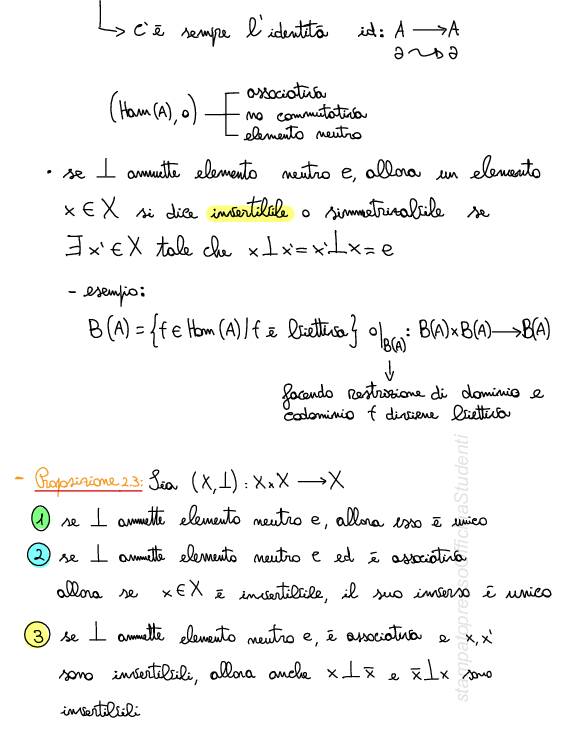 ↳ c'è sempre l'identità id: A ⟶ A
a ⤳ a
(Hom(A), o)
associativa
no commutativa
elemento neutro
• se ⊥ ammette elemento neutro e, allora un elemento
x ∈ X si dice invertibile o simmetrizzabile se
∃ x' ∈ X tale che x ⊥ x' = x' ⊥ x = e
- esempio:
B(A) = {f ∈ Hom(A) / f è biettiva} o|B(A) : B(A)×B(A) ⟶ B(A)
↓
facendo restrizione di dominio e
codominio f diviene biettiva
- Proposizione 2.3: Sia (X,⊥) : X×X ⟶ X
1 se ⊥ ammette elemento neutro e, allora esso è unico
2 se ⊥ ammette elemento neutro e ed è associativa
allora se x ∈ X è invertibile, il suo inverso è unico
3 se ⊥ ammette elemento neutro e, è associativa e x, x'
sono invertibili, allora anche x ⊥ x̄ e x̄ ⊥ x sono
invertibili